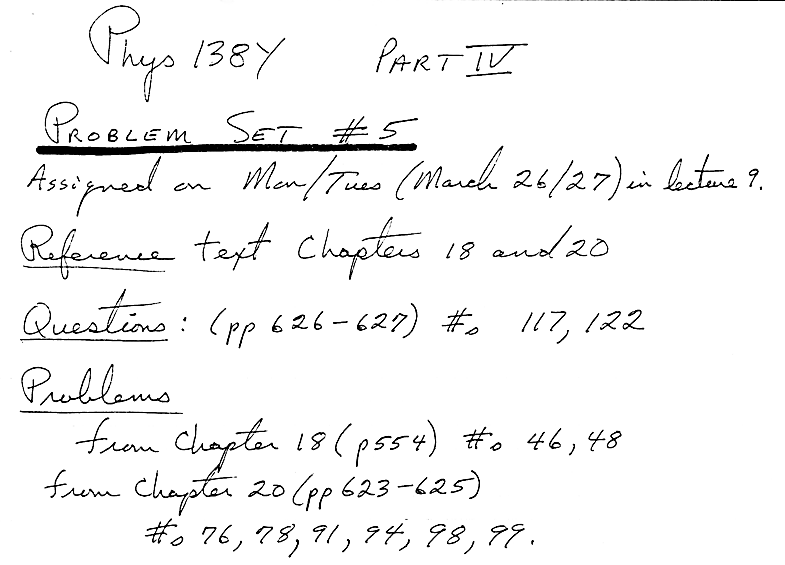 Phys 138Y PART IV
PROBLEM SET # 5
Assigned on Mon/Tues (March 26/27) in lecture 9.
Reference text Chapters 18 and 20
Questions: (pp 626-627) #s 117, 122
Problems
from Chapter 18 (p554) #s 46, 48
from Chapter 20 (pp 623-625)
#s 76, 78, 91, 94, 98, 99.